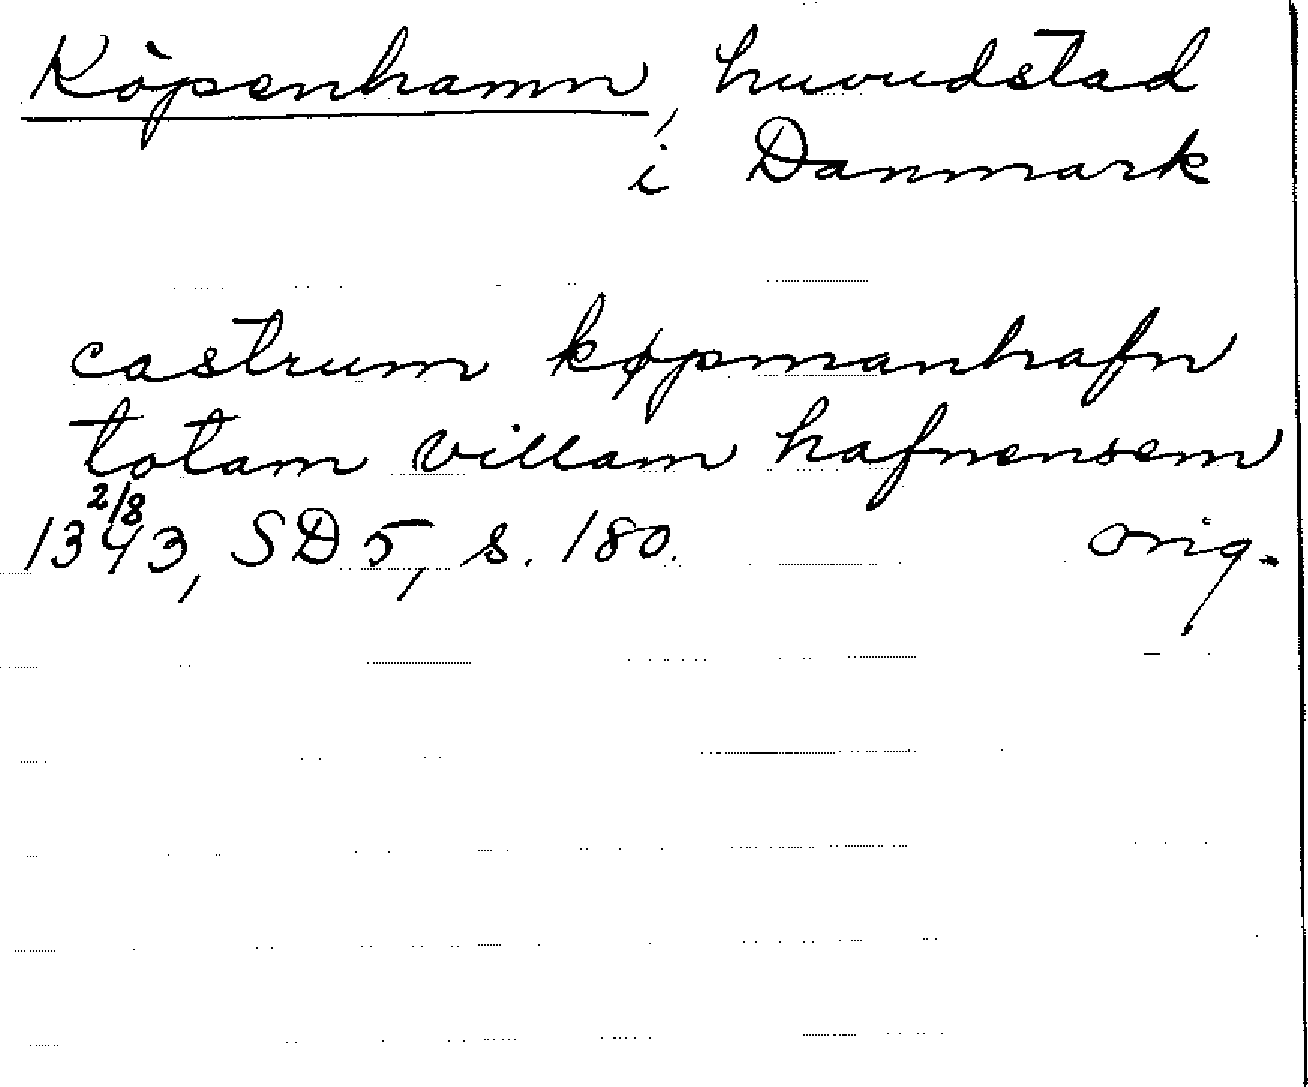 Köpenhamn, huvudstad
i Danmark
castrum køpmanhafn
totam villam hafnensem
1343 2/8, SD 5, s. 180. orig.